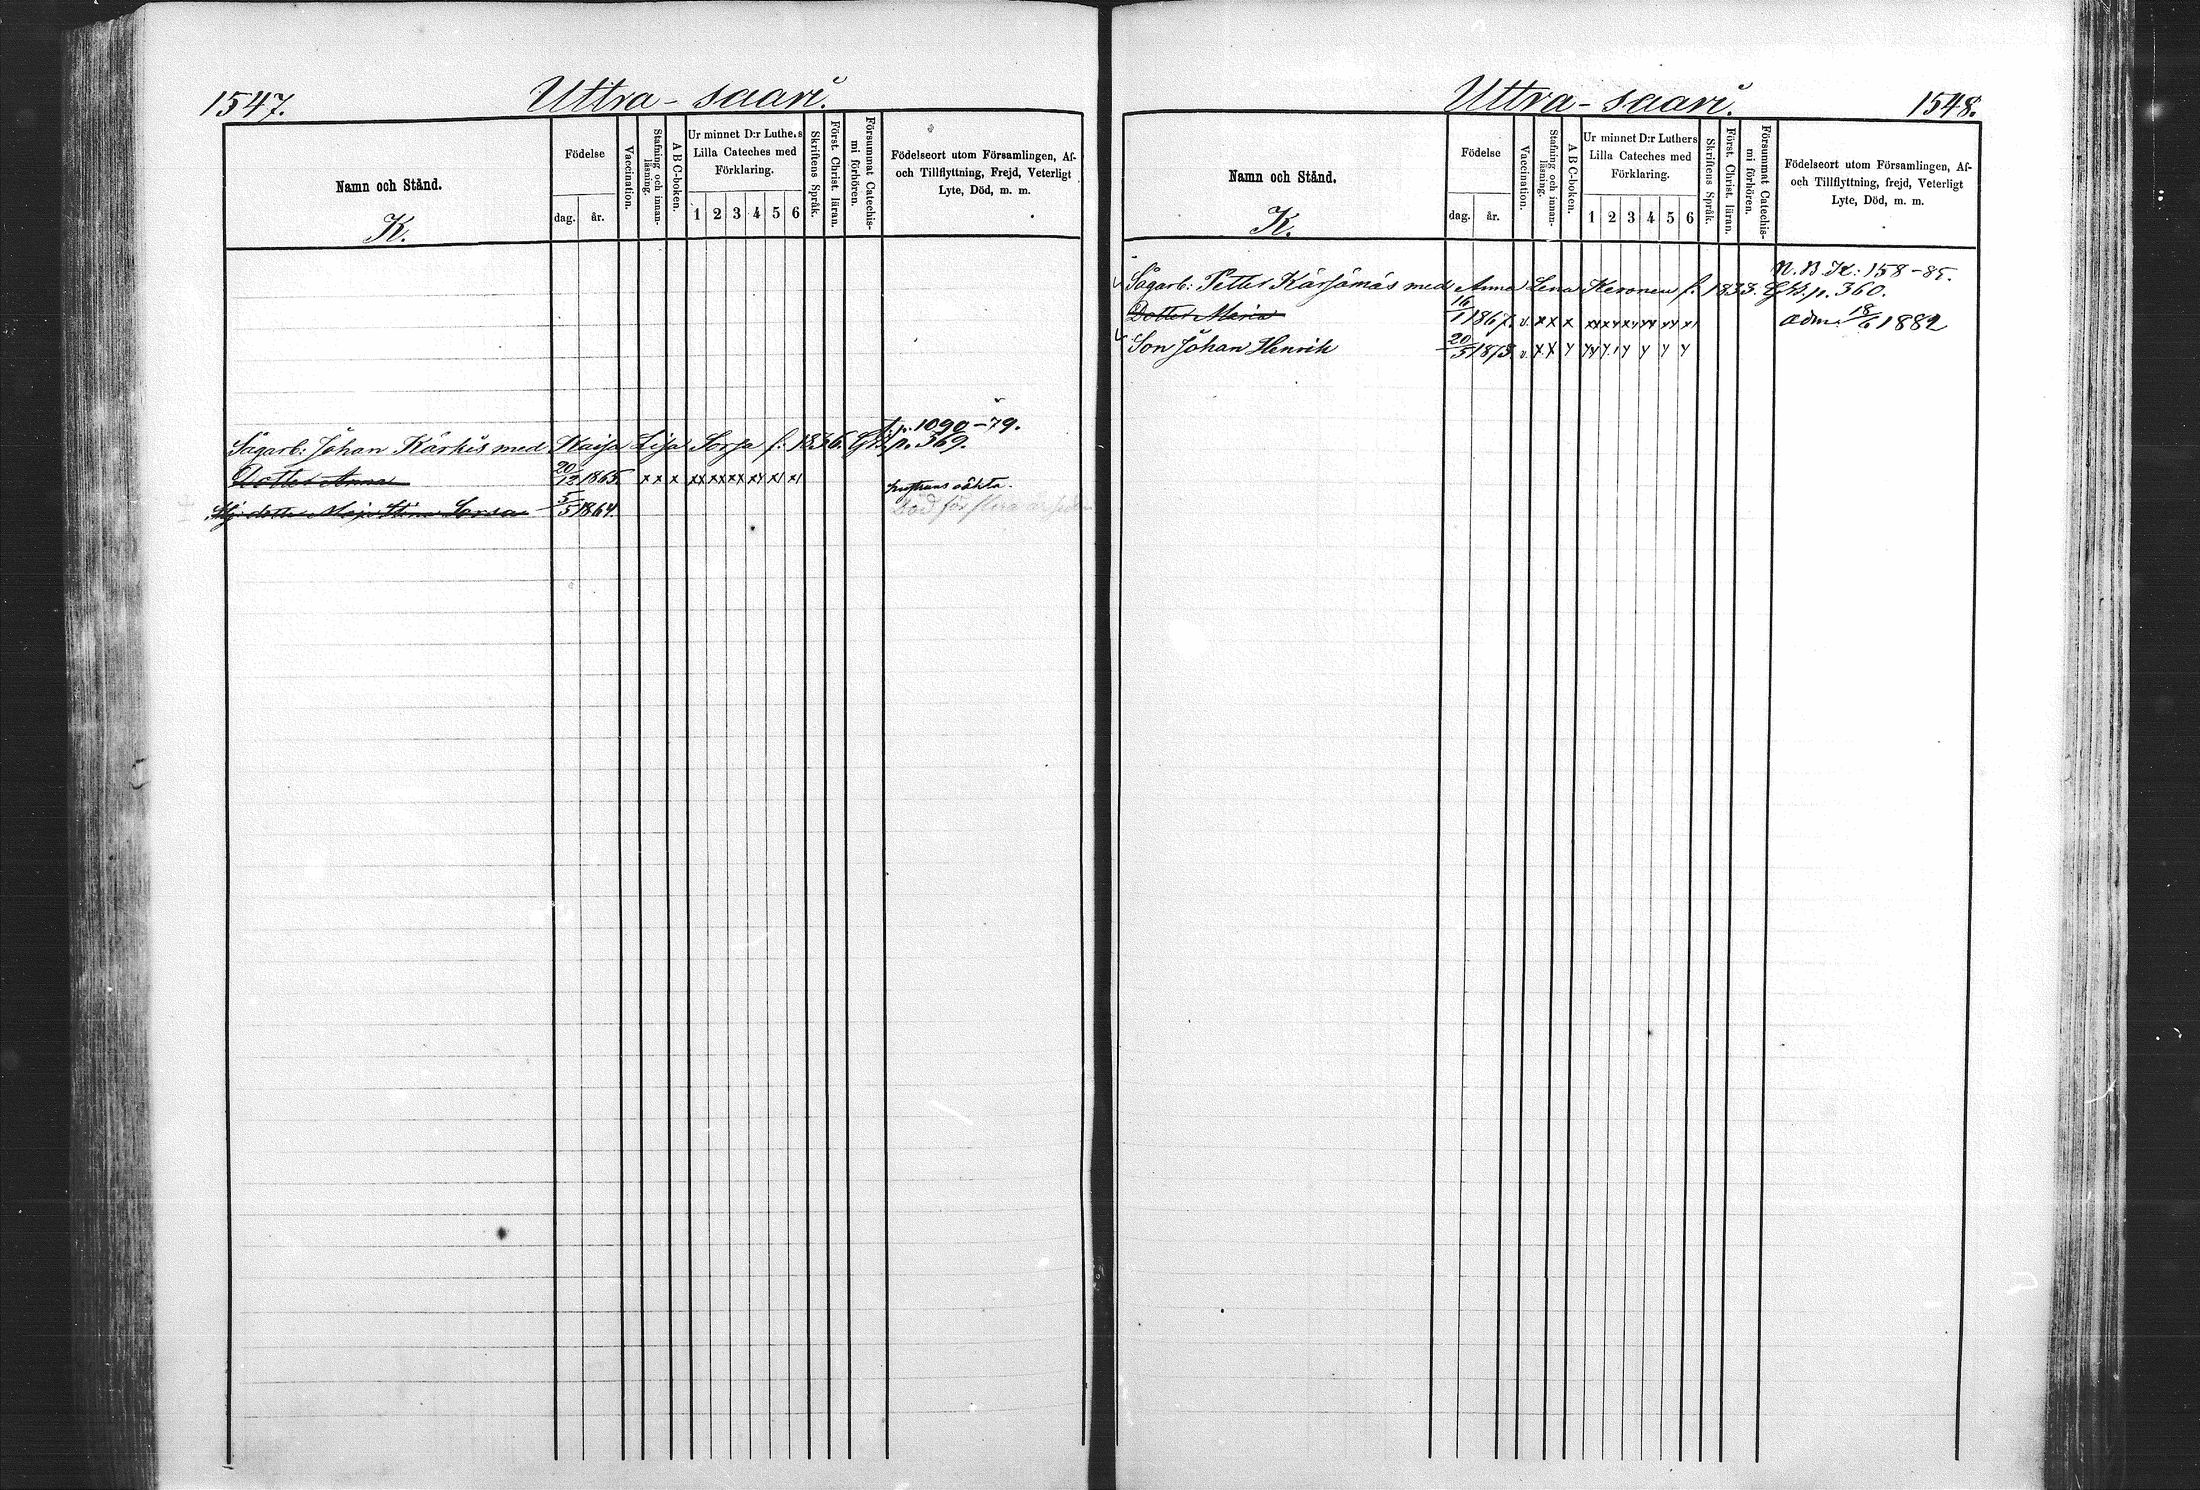 1547.
Uttra-saari.
Namn och Stånd.
K.
Födelse
dag.
år.
Vaccination.
Stafning och innan-
läsning.
A B C-boken.
Ur minnet D:r Luthers
Lilla Cateches med
Förklaring.
1 2 3 4 5 6
Skriftens Språk.
Först. Christ. läran.
Försummat Catechis-
mi förhören.
Födelseort utom Församlingen, Af-
och Tillflyttning, Frejd, Veterligt
Lyte, Död, m. m.
p. 1090-79.
Sågarb: Johan Kärkis med Kaisa Lisa Sorsa f: 1836. Gk. p. 369.
Dotter Anna 20/12 1865. x x x xx xx xx xy xy xy
hustruns oäkta.
dotter Maja Stina Sorsa 5/5 1864. Död för flera år sedan
Uttra-saari.
1548.
Namn och Stånd.
K.
Födelse
dag.
år.
Vaccination.
Stafning och innan-
läsning.
A B C-boken.
Ur minnet D:r Luthers
Lilla Cateches med
Förklaring.
1 2 3 4 5 6
Skriftens Språk.
Först. Christ. läran.
Försummat Catechis-
mi förhören.
Födelseort utom Församlingen, Af-
och Tillflyttning, frejd, Veterligt
Lyte, Död, m. m.
N. B. K: 158-85.
Sågarb: Petter Kärsämäs med Anna Lena Keronen f. 1833. Gk. p. 360.
Dotter Maria 16/1 1867. v. x x x xx xy xy yy yy xy adm. 18/6 1882
Son Johan Henrik 20/5 1873 v. x x y yy y y y y y